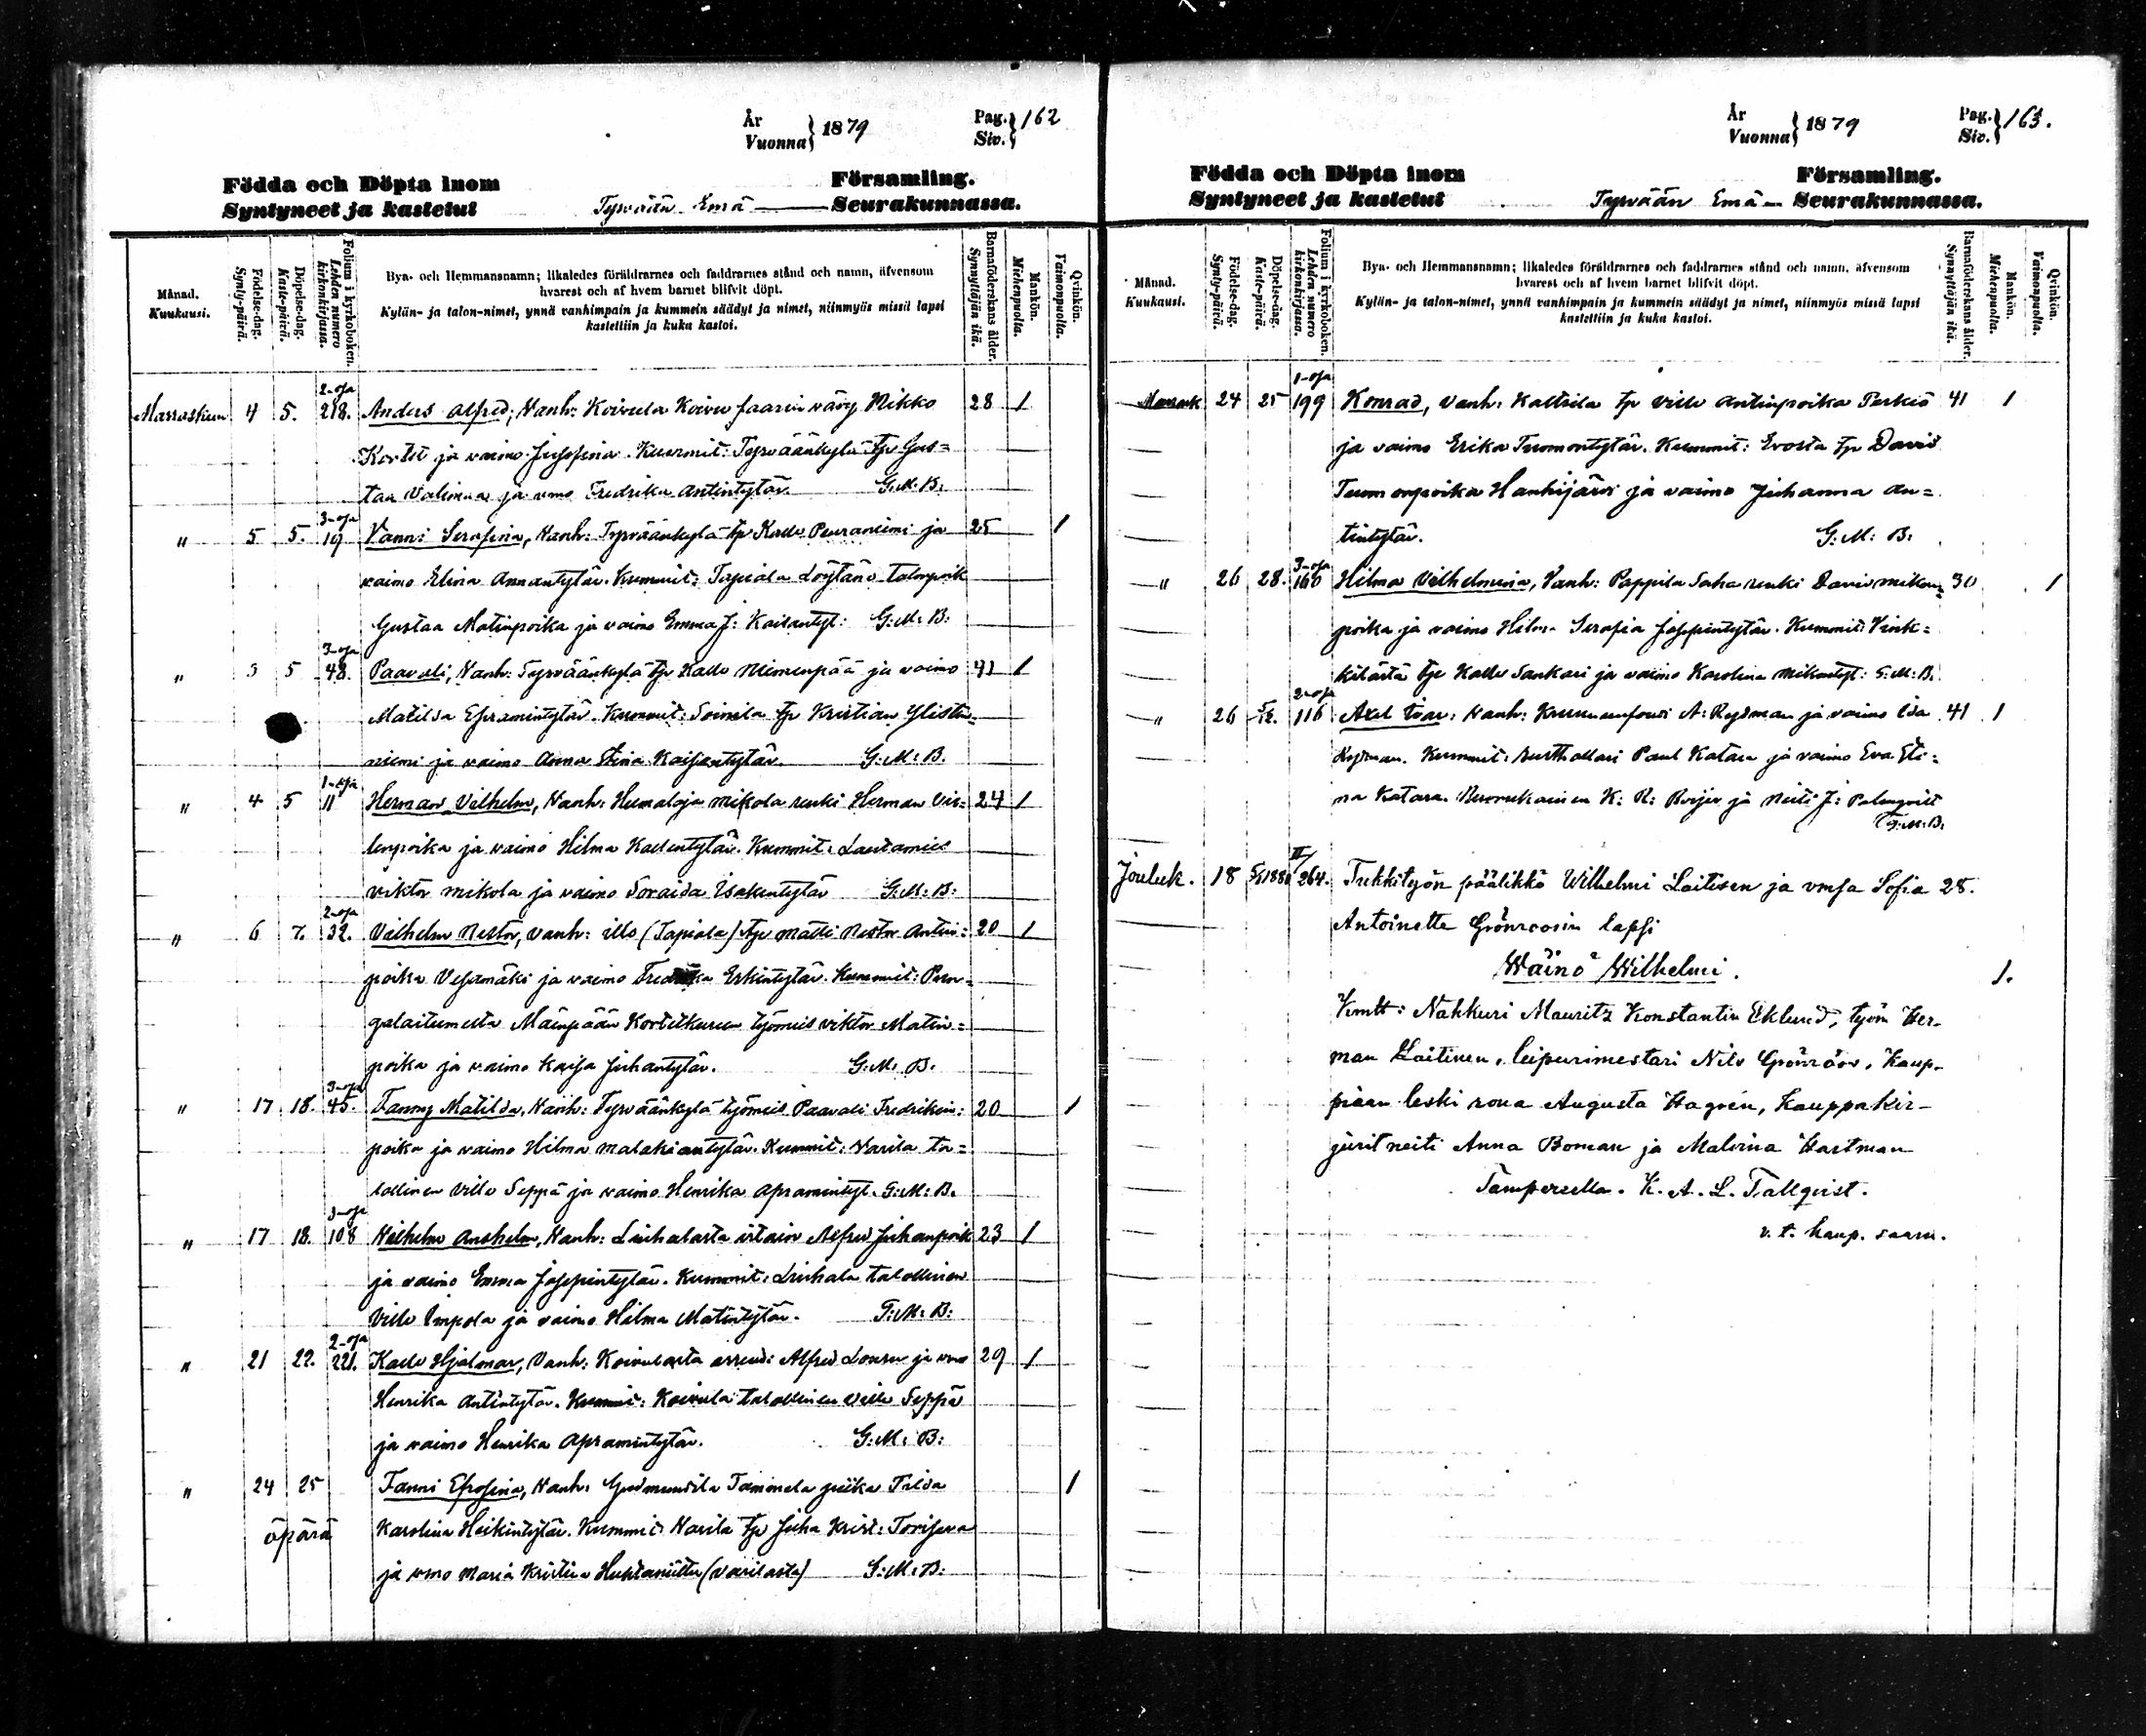 År
Vuonna } 1879
Pag.
Siv. } 162
Födda och Döpta inom
Syntyneet ja kastetut
Tyrvään Emä
Församling.
Seurakunnassa.
Månad.
Kuukausi.
Födelse-dag.
Synty-päivä.
Döpelse-dag.
Kaste-päivä.
Folium i kyrkoboken.
Lehden numero kirkonkirjassa.
Bya- och Hemmansnamn; likaledes föräldrarnes och faddrarnes stånd och namn, äfvensom
hvarest och af hvem barnet blifvit döpt.
Kylän- ja talon-nimet, ynnä vanhimpain ja kummein säädyt ja nimet, niinmyös missä lapsi
kastettiin ja kuka kastoi.
Barnaföderskans ålder.
Synnyttäjän ikä.
Mankön.
Miehenpuolta.
Qvinkön.
Vaimonpuolta.
2-osa
Marraskuu 4 5. 218. Anders Alfred, Vanh: Koivula Koivu faarin vävy Mikko 28 1
ja vaimo Josefina. Kummit: Tyrväänkylä tp Gus=
taa ja vmo Fredrika Antintytär. G.M.B.
3-osa
" 5 5. 19 Vanni Serafina, Vanh: Tyrväänkylä tp Kalle Peuraniemi ja 25 1
vaimo Elina Annantytär. Kummit: Tapiola Löytänö talonpoik
Gustaa Matinpoika ja vaimo Emma J: Kaisantyt: G:M:B:
3-osa
" 3 5 48. Paavali, Vanh: Tyrväänkylä tp Kalle Niemenpää ja vaimo 41 1
Matilda Eframintytär. Kummit: Soinila tp Kristian Ylistön
niemi ja vaimo Anna Stina Kaisantytär. G:M:B.
1-osa
" 4 5 11 Herman Vilhelm, Vanh: Humaloja Mikola renki Herman Vil= 24 1
lenpoika ja vaimo Hilma Kallentytär. Kummit: Lautamies
Viktor Mikola ja vaimo Isakintytär G:M:B:
2-osa
" 6 7. 32. Vilhelm Nestor, Vanh: Illo (Tapiola) tp Matti Nestor Antin= 20 1
poika Vesamäki ja vaimo Fredrika Erkintytär. Kummit: Pun=
galaitumelta Mäenpään työmies Viktor Matin=
poika ja vaimo Kaisa Juhantytär. G.M. B.
3-osa
" 17 18. 45. Fanny Matilda, Vanh: Tyrväänkylä työmies Paavali Fredrikin: 20 1
poika ja vaimo Hilma Malakiantytär. Kummit: Varila ta=
lollinen Ville Seppä ja vaimo Henrika Apramintyt. G:M:B.
3-osa
" 17 18. 108 Vilhelm Anshelm, Vanh: Liuhalasta Alfred Juhanpoik 23 1
ja vaimo Emma Josepintytär. Kummit: Liuhala talollinen
Ville Impola ja vaimo Hilma Matintytär. G:M:B:
2-osa
" 21 22. 221. Kalle Hjalmar, Vanh: Koivulasta Alfred Lonsu ja vmo 29 1
Henrika Antintytär. Kummit: Koivula talollinen Ville Seppä
ja vaimo Henrika Apramintytär. G:M:B:
" 24 25 Fanni Efrosina, Vanh: Gudmundila Tammela piika Tilda 1
äpärä Karolina Heikintytär. Kummit: Varila tp Juha Krist: Torisova
ja vmo Maria Kristina (Varilasta) G:M:B:
År
Vuonna } 1879
Pag.
Siv. } 163.
Födda och Döpta inom
Syntyneet ja kastetut
Tyrvään Emä
Församling.
Seurakunnassa.
Månad.
Kuukausi.
Födelse-dag.
Synty-päivä.
Döpelse-dag.
Kaste-päivä.
Folium i kyrkoboken.
Lehden numero kirkonkirjassa.
Bya- och Hemmansnamn; likaledes föräldrarnes och faddrarnes stånd och namn, äfvensom
hvarest och af hvem barnet blifvit döpt.
Kylän- ja talon-nimet, ynnä vanhimpain ja kummein säädyt ja nimet, niinmyös missä lapsi
kastettiin ja kuka kastoi.
Barnaföderskans ålder.
Synnyttäjän ikä.
Mankön.
Miehenpuolta.
Qvinkön.
Vaimonpuolta.
1-osa
Marrask 24 25 199 Konrad, Vanh: Kaltsila tp Ville Antinpoika Perkiö 41 1
ja vaimo Erika Tuomontytär. Kummit: Evosta tp David
Tuomonpoika Hanhijärvi ja vaimo Juhanna An=
tintytär. G:M:B.
3-osa
" 26 28. 160 Hilma Vilhelmina, Vanh: Pappila Saha renki David Mikon= 30 1
poika ja vaimo Hilma Serafia Josepintytär. Kummit: Vink=
kilästä tp Kalle Sankari ja vaimo Karolina Mikontyt: G:M:B.
2-osa
" 26 5/12. 116 Axel Ivar: Vanh: Kruununfouti A: Rydman ja vaimo Ida 41 1
Rydman. Kummit: Paul Katara ja vaimo Eva Sti=
na Katara. Nuorukainen K: R: Roijer ja Neiti J: Palmqvist
G:M:B.
II/
Jouluk. 18 5/1 1880 264. Tukkityön päälikkö Wilhelmi Laitisen ja vmsa Sofia 28.
Antoinette Grönroosin lapsi
Wäinö Wilhelmi. 1.
Kmtt: Nahkuri Mauritz Konstantin Eklund, työm Her-
man Laitinen, leipurimestari Nils Grönroos, Kaup-
piaan leski rova Augusta Hagrén, Kauppakir-
jurit neiti Anna Boman ja Malvina Hartman
Tampereella. K. A. L. Tallqvist.
v. t. kaup. saarn.